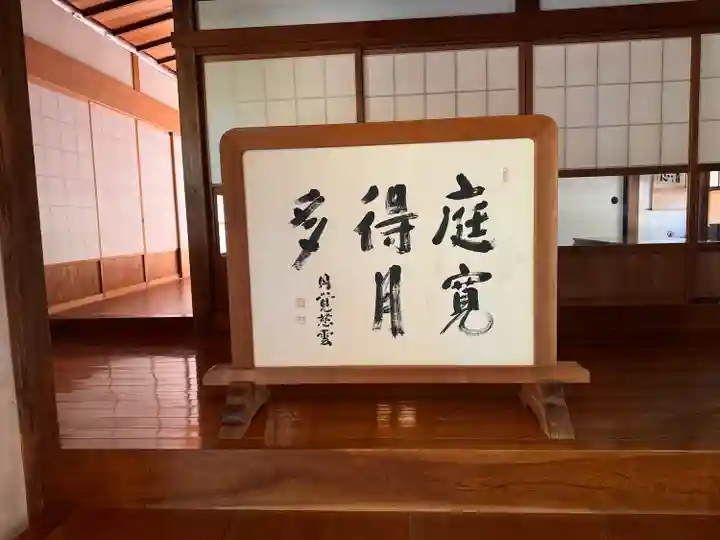 庭寛
得月
多
月覚慈雲